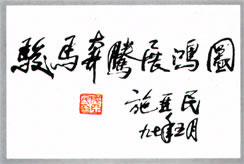 駿馬奔騰展鴻圖
施亚民
九七年五月